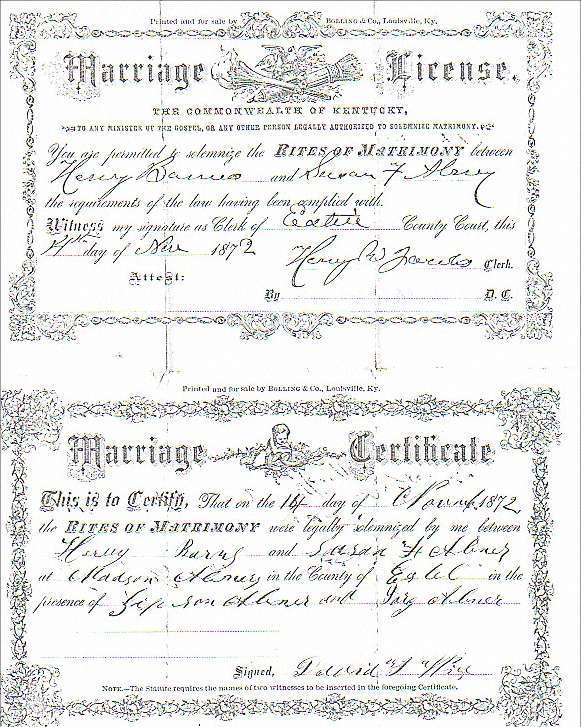 Printed and for sale by BOLLING & Co., Louisville, Ky.
Marriage License.
THE COMMONWEALTH OF KENTUCKY,
TO ANY MINISTER OF THE GOSPEL, OR ANY OTHER PERSON LEGALLY AUTHORIZED TO SOLEMNIZE MATRIMONY.
You are permitted to solemnize the RITES OF MATRIMONY between
Henry and Susan F Abney
the requirements of the law having been complied with.
Witness my signature as Clerk of County Court, this
day of Nov 1872 Henry W Clerk.
Attest:
By D. C.
Printed and for sale by BOLLING & Co., Louisville, Ky.
Marriage Certificate
This is to Certify, That on the 14 day of 1872
the RITES OF MATRIMONY were legally solemnized by me between
Henry and Susan F Abner
at Madson Abner in the County of Estel in the
presence of Abner and Abner
Signed, David
NOTE.—The Statute requires the names of two witnesses to be inserted in the foregoing Certificate.